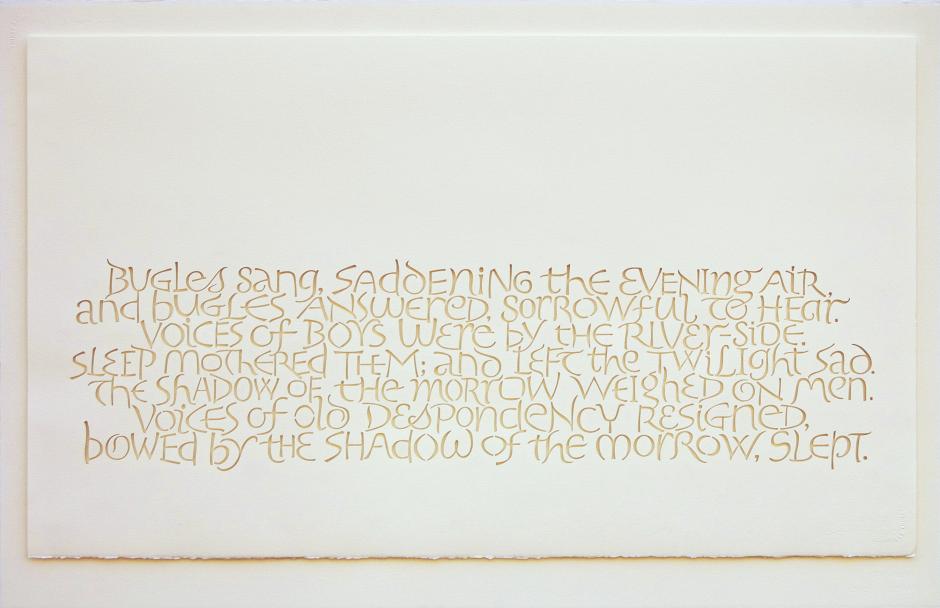 BUGLes sang, SAddENiNG the EVENINg AIR,
and bUGLES ANSWERED, SORROWful TO HEar.
VOICES of BOYS WERe by tHE RIVEr-SiDE.
SLEEP MOTHERed THEM; and LEFT the TWiLIght Sad.
THe SHADOW OF the moRROW WEIGHED ON Men.
VoiCES of Old DESPONdeNCY RESIGNED,
bOWEd by tHE SHAdOW of the moRROW, SLEpT.